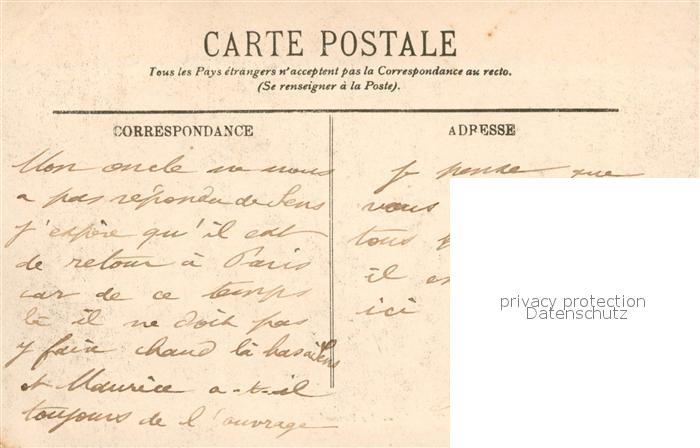 CARTE POSTALE
Tous les Pays étrangers n'acceptent pas la Correspondance au recto.
(Se renseigner à la Poste).
CORRESPONDANCE
ADRESSE
Mon oncle ne nous
a pas répondu de Sens
j'espère qu'il est
de retour à Paris
car de ce temps
là il ne doit pas
y faire chaud là bas à Sens
et Maurice a-t-il
toujours de l'ouvrage
Je pense que
vous
tous
il es
ici
privacy protection
Datenschutz